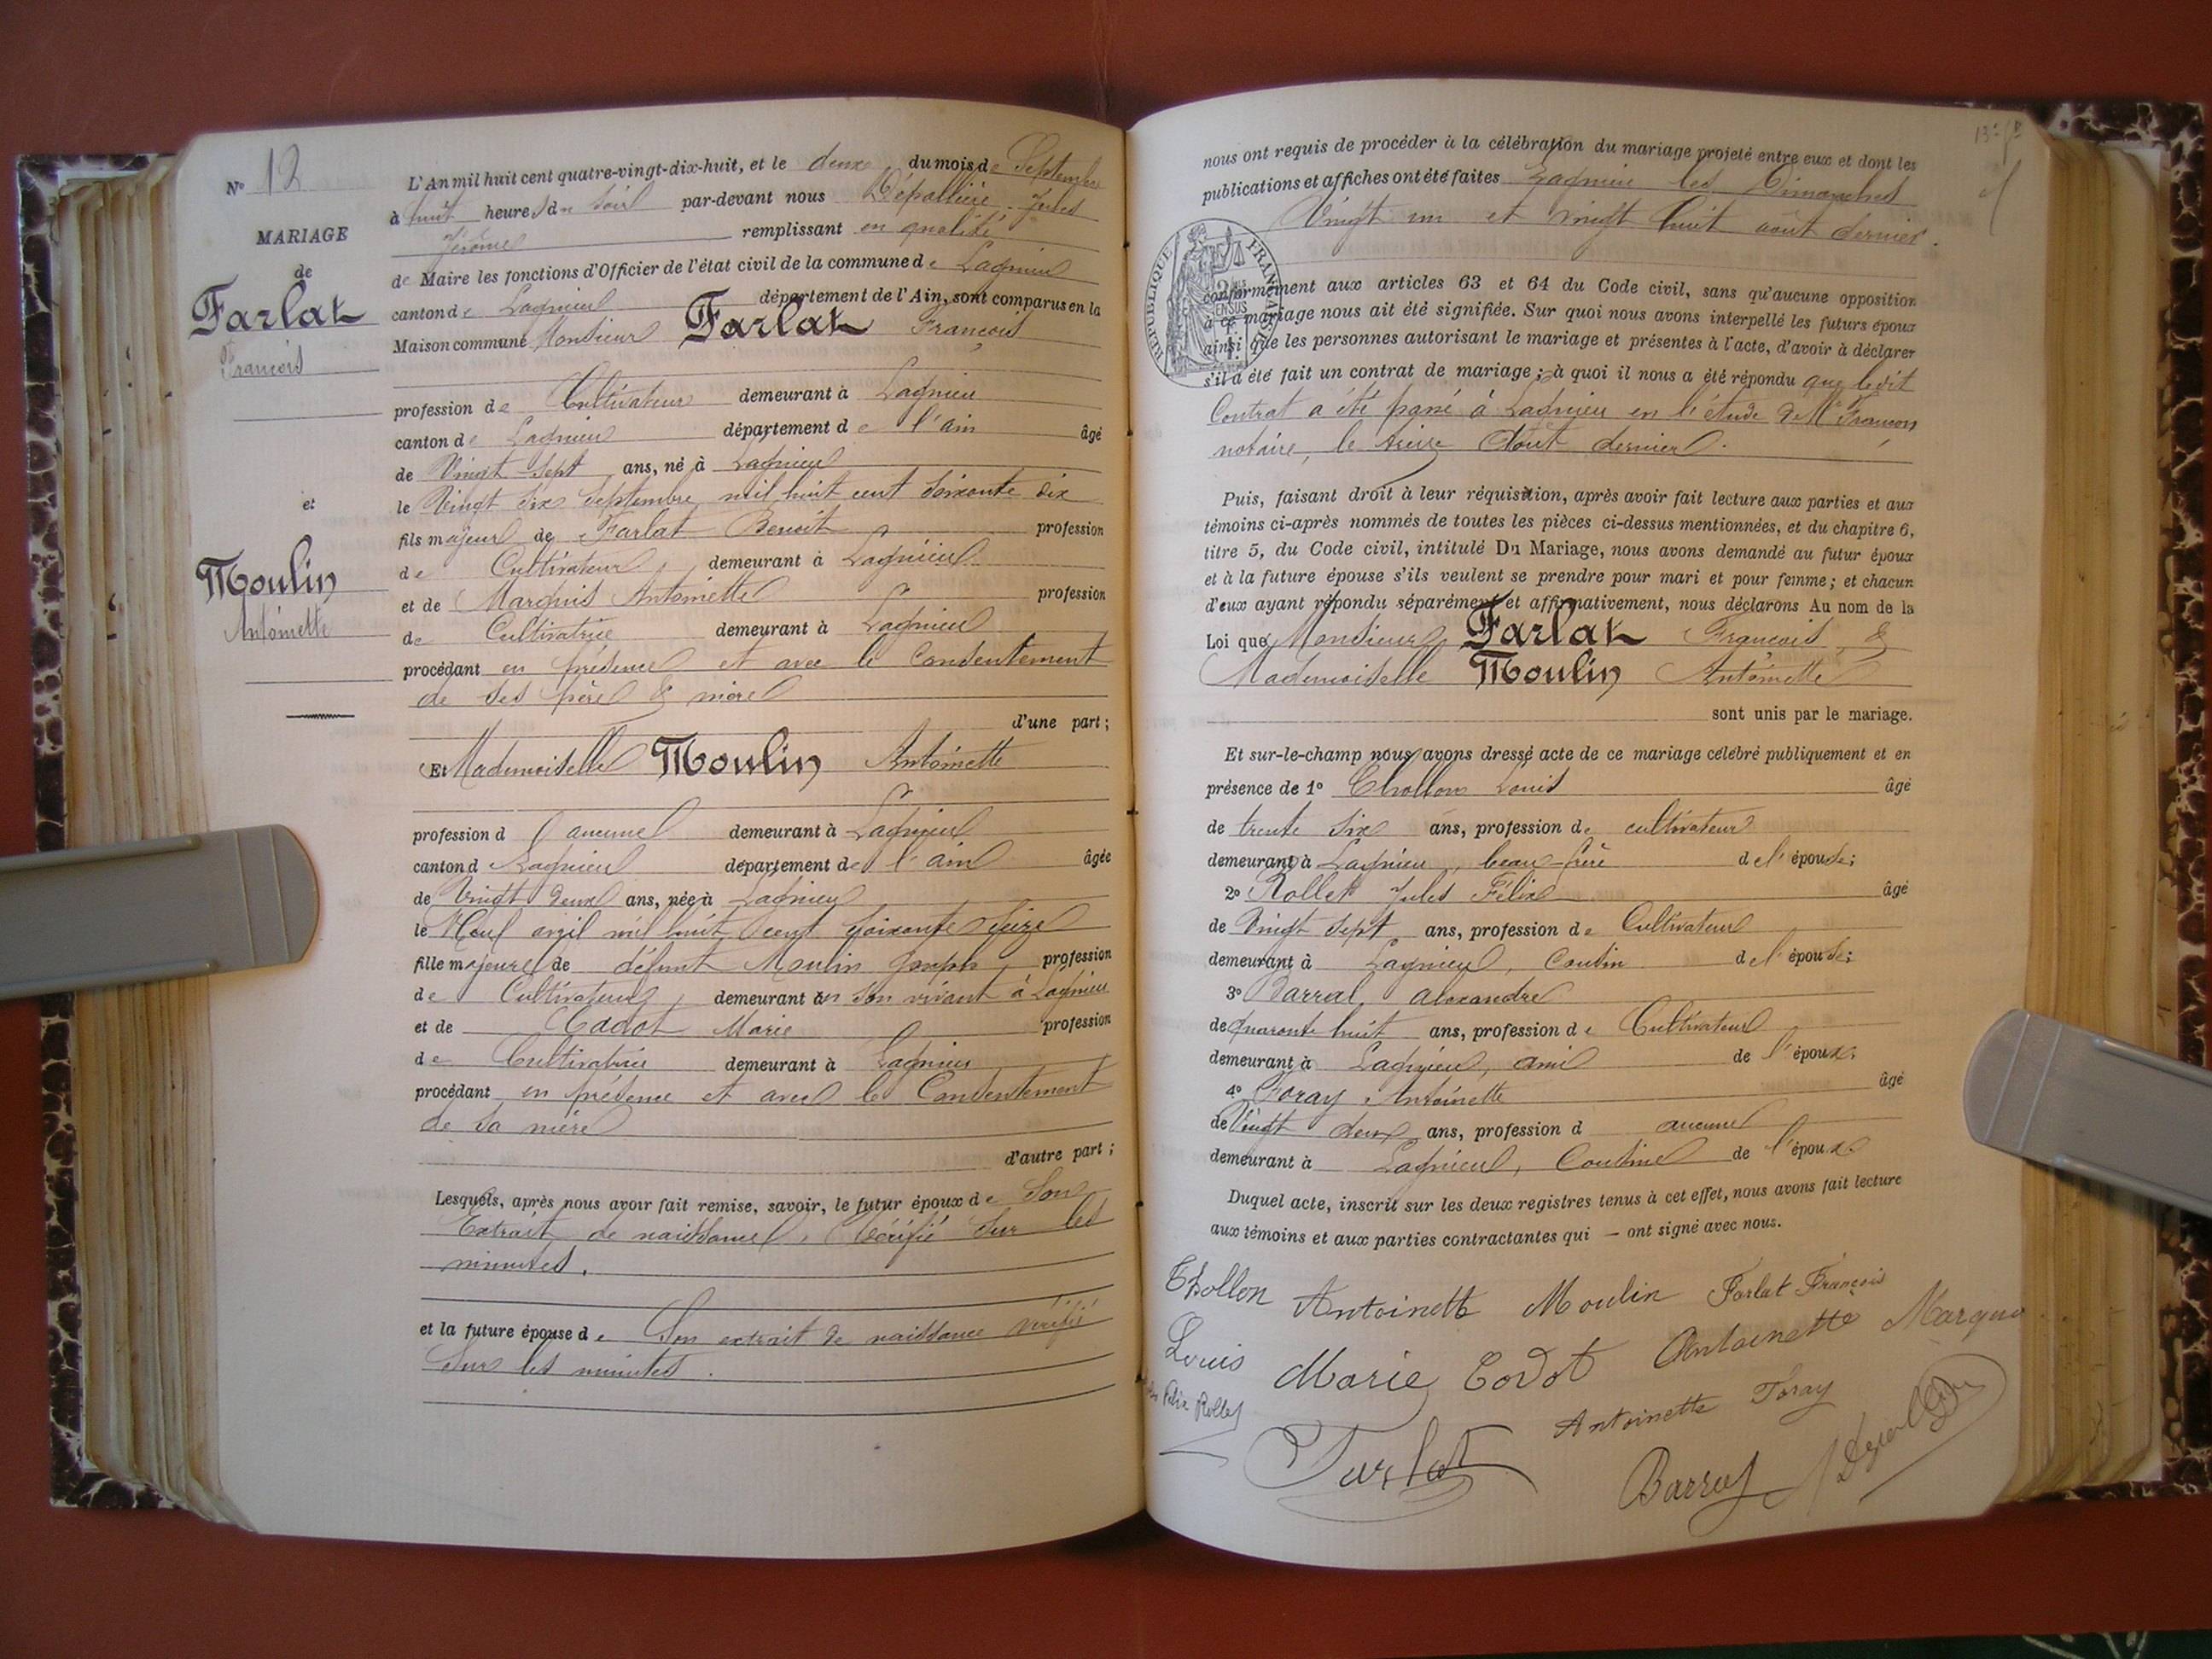 N° 12
MARIAGE
de
Farlat
François
et
Moulin
Antoinette
L'An mil huit cent quatre-vingt-dix-huit, et le deux du mois de Septembre
à huit heures du soir par-devant nous Dépollière Jules
Jérôme remplissant en qualité
de Maire les fonctions d'Officier de l'état civil de la commune de Lagnieu
canton de Lagnieu département de l'Ain, sont comparus en la
Maison commune Monsieur Farlat François
profession de Cultivateur demeurant à Lagnieu
canton de Lagnieu département de l'ain âgé
de Vingt Sept ans, né à Lagnieu
le Vingt Six Septembre mil huit cent soixante dix
fils majeur de Farlat Benoit profession
de Cultivateur demeurant à Lagnieu
et de Marquis Antoinette profession
de Cultivatrice demeurant à Lagnieu
procédant en présence et avec le Consentement
de ses père & mère
d'une part;
Et Mademoiselle Moulin Antoinette
profession d aucune demeurant à Lagnieu
canton d Lagnieu département de l'ain âgée
de Vingt deux ans, née à Lagnieu
le Neuf avril mil huit cent soixante seize
fille majeure de défunt Moulin Joseph profession
de Cultivateur, demeurant en son vivant à Lagnieu
et de Cadot Marie profession
de Cultivatrice demeurant à Lagnieu
procédant en présence et avec le Consentement
de sa mère
d'autre part;
Lesquels, après nous avoir fait remise, savoir, le futur époux de Son
Extrait de naissance, Vérifié sur les
minutes.
et la future épouse de Son extrait de naissance vérifié
Sur les minutes.
nous ont requis de procéder à la célébration du mariage projeté entre eux et dont les
publications et affiches ont été faites Lagnieu les Dimanches
Vingt un et vingt huit août dernier.
RÉPUBLIQUE FRANÇAISE
conformément aux articles 63 et 64 du Code civil, sans qu'aucune opposition
à ce mariage nous ait été signifiée. Sur quoi nous avons interpellé les futurs époux
ainsi que les personnes autorisant le mariage et présentes à l'acte, d'avoir à déclarer
s'il a été fait un contrat de mariage; à quoi il nous a été répondu que ledit
Contrat a été passé à Lagnieu en l'étude de Me Françon
notaire, le treize Août dernier.
Puis, faisant droit à leur réquisition, après avoir fait lecture aux parties et aux
témoins ci-après nommés de toutes les pièces ci-dessus mentionnées, et du chapitre 6,
titre 5, du Code civil, intitulé Du Mariage, nous avons demandé au futur époux
et à la future épouse s'ils veulent se prendre pour mari et pour femme; et chacun
d'eux ayant répondu séparément et affirmativement, nous déclarons Au nom de la
Loi que Monsieur Farlat François, &
Mademoiselle Moulin Antoinette
sont unis par le mariage.
Et sur-le-champ nous avons dressé acte de ce mariage célébré publiquement et en
présence de 1° Chollon Louis âgé
de trente six ans, profession de cultivateur
demeurant à Lagnieu, beau-frère de l'épouse;
2° Rollet Jules Félix âgé
de Vingt Sept ans, profession de Cultivateur
demeurant à Lagnieu, Cousin de l'épouse;
3° Barral Alexandre
de quarante huit ans, profession de Cultivateur
demeurant à Lagnieu, ami de l'époux;
4° Foray Antoinette âgé
de Vingt deux ans, profession d aucune
demeurant à Lagnieu, Cousine de l'époux
Duquel acte, inscrit sur les deux registres tenus à cet effet, nous avons fait lecture
aux témoins et aux parties contractantes qui — ont signé avec nous.
Chollon Antoinette Moulin Farlat François
Louis Marie Codot Antoinette Marquis
Felix Rollet Antoinette Foray
Farlat Barral